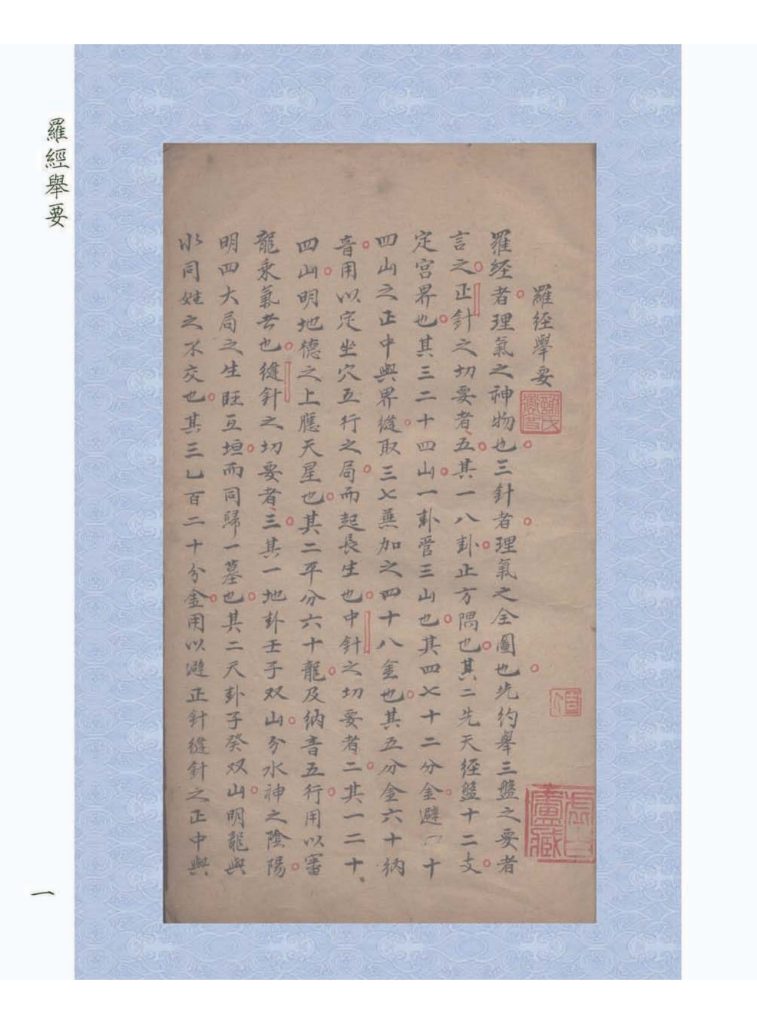 羅經舉要
羅經舉要
羅経者理氣之神物也三針者理氣之全圖也先約舉三盤之要者
言之正針之切要者五其一八卦止方隅也其二先天経盤十二支
定宮界也其三二十四山一卦管三山也其四七十二分金避二十
四山之正中與界縫取三七兼加之四十八金也其五分金六十納
音用以定坐穴五行之局而起長生也中針之切要者二其一二十
四山明地德之上應天星也其二平分六十龍及納音五行用以審
龍乘氣者也縫針之切要者三其一地卦壬子双山分水神之陰陽
明四大局之生旺互垣而同歸一墓也其二天卦子癸双山明龍與
水同姓之不交也其三乙百二十分金用以避正針縫針之正中與
一